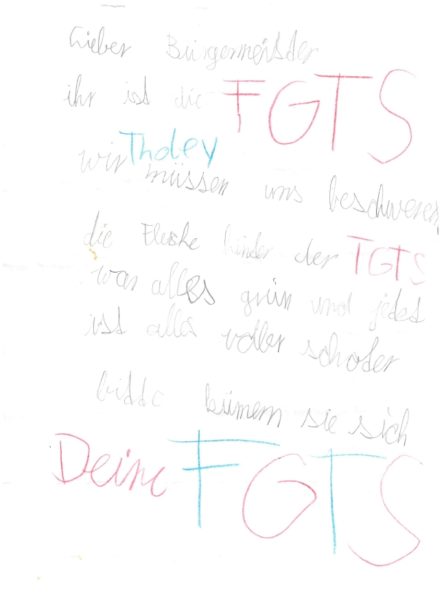 Lieber Bürgermeister
ihr ist die FGTS
Tholey
wir müssen uns beschweren
die Fleche hinder der TGTS
war alles grün und jedst
ist alles voller schoter
bitte kümern sie sich
Deine FGTS